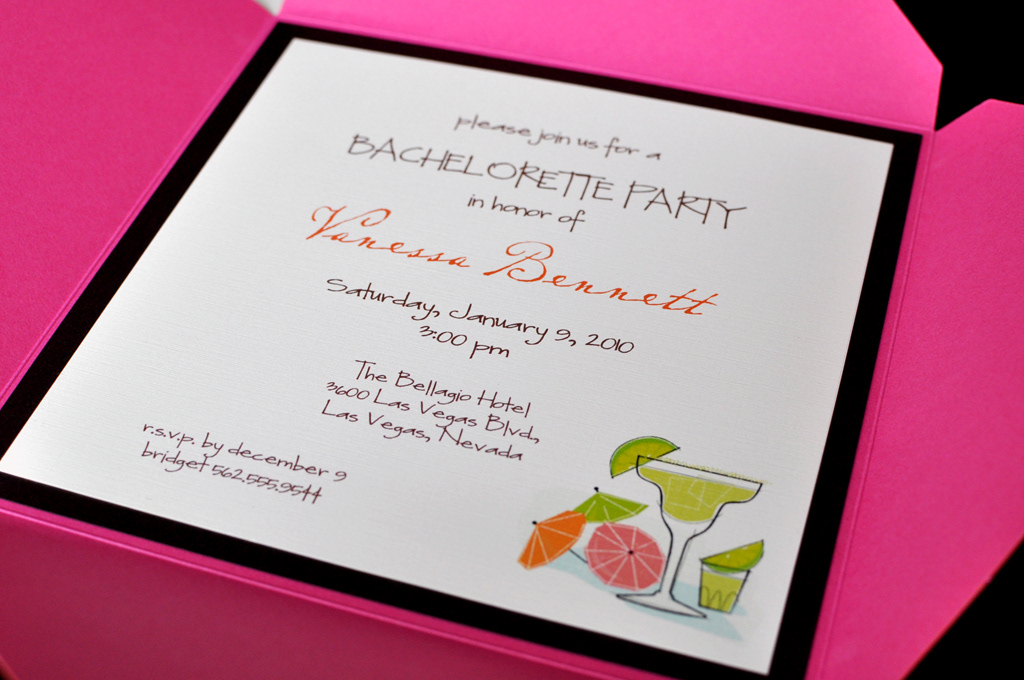 please join us for a
BACHELORETTE PARTY
in honor of
Vanessa Bennett
Saturday, January 9, 2010
3:00 pm
The Bellagio Hotel
3600 Las Vegas Blvd,
Las Vegas, Nevada
r.s.v.p. by december 9
bridget 562.555.9544